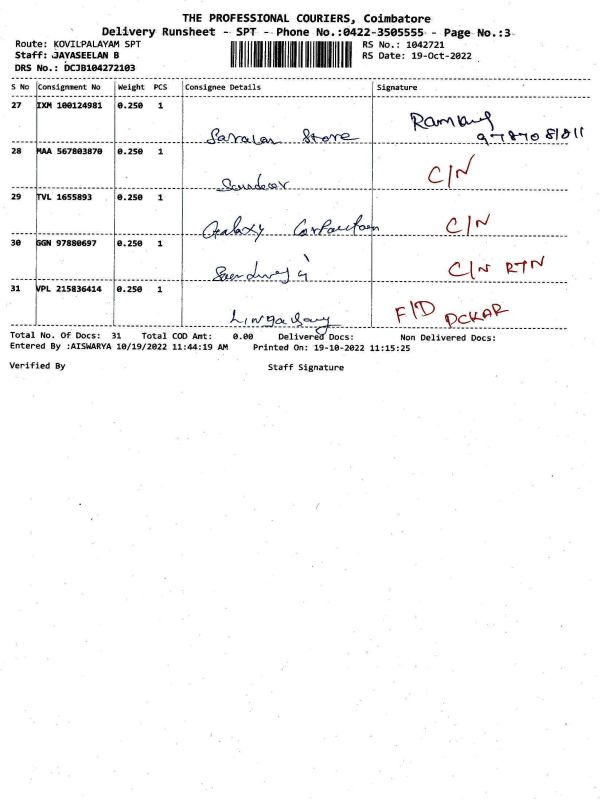 THE PROFESSIONAL COURIERS, Coimbatore
Delivery Runsheet - SPT - Phone No.:0422-3505555 - Page No.:3
Route: KOVILPALAYAM SPT RS No.: 1042721
Staff: JAYASEELAN B RS Date: 19-Oct-2022
DRS No.: DCJB104272103
S No Consignment No Weight PCS Consignee Details Signature
27 IXM 100124981 0.250 1
Store 9787081811
28 MAA 567803870 0.250 1
C/N
29 TVL 1655893 0.250 1
Galaxy C/N
30 GGN 97880697 0.250 1
C/N RTN
31 VPL 215836414 0.250 1
F/D
Total No. Of Docs: 31 Total COD Amt: 0.00 Delivered Docs: Non Delivered Docs:
Entered By :AISWARYA 10/19/2022 11:44:19 AM Printed On: 19-10-2022 11:15:25
Verified By Staff Signature